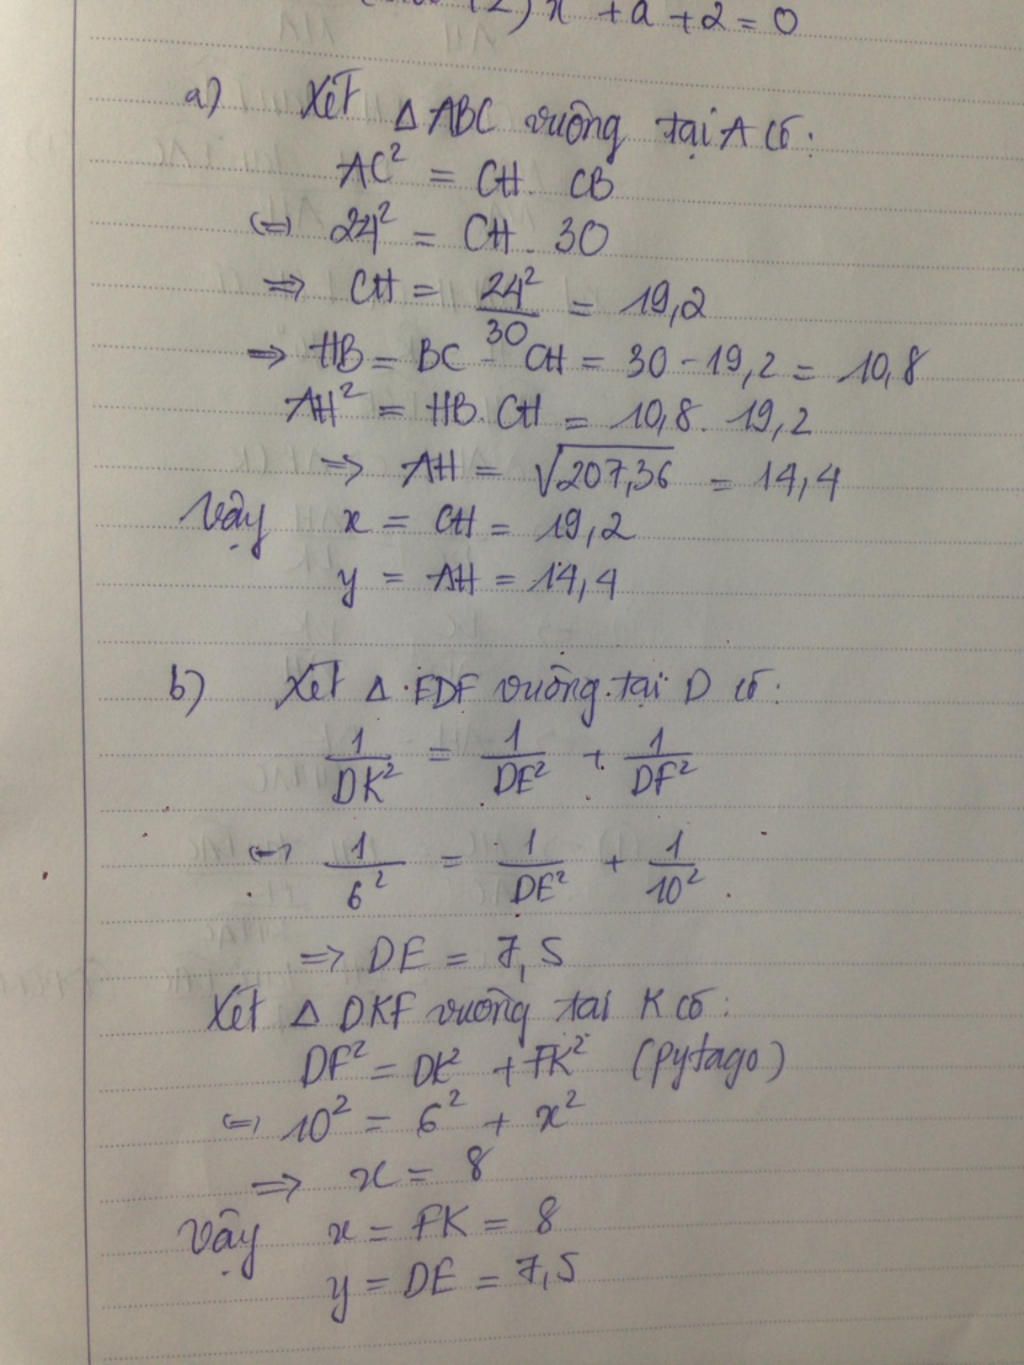 2) x + a + 2 = 0
a) Xét △ ABC vuông tại A có:
AC² = CH. CB
(=) 24² = CH. 30
=> CH = 24²/30 = 19,2
=> HB = BC - CH = 30 - 19,2 = 10,8
AH² = HB. CH = 10,8. 19,2
=> AH = √207,36 = 14,4
Vậy x = CH = 19,2
y = AH = 14,4
b) Xét △ EDF vuông tại D có:
1/DK² = 1/DE² + 1/DF²
(=) 1/6² = 1/DE² + 1/10²
=> DE = 7,5
Xét △ DKF vuông tai K có:
DF² = DK² + FK² (pytago)
(=) 10² = 6² + x²
=> x = 8
Vậy x = FK = 8
y = DE = 7,5